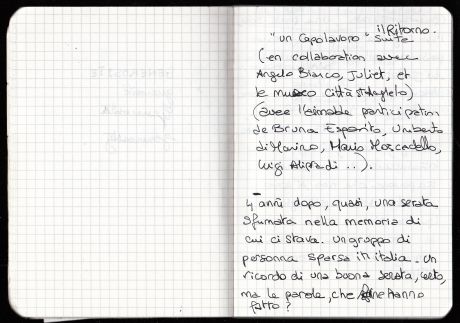 il Ritorno.
"un Capolavoro" suite
(en collaboration avec
Angelo Bianco, Juliet, et
le museo città st'Angelo)
(avec l'aimable participation
de Bruna Esposito, Umberto
di Marino, Mario
Luigi
4 anni dopo, quasi, una serata
sfumata nella memoria di
cui ci stava. un gruppo di
persona sparsa in italia. un
ricordo di una buona serata, certo,
ma le parole, che fine hanno
fatto?